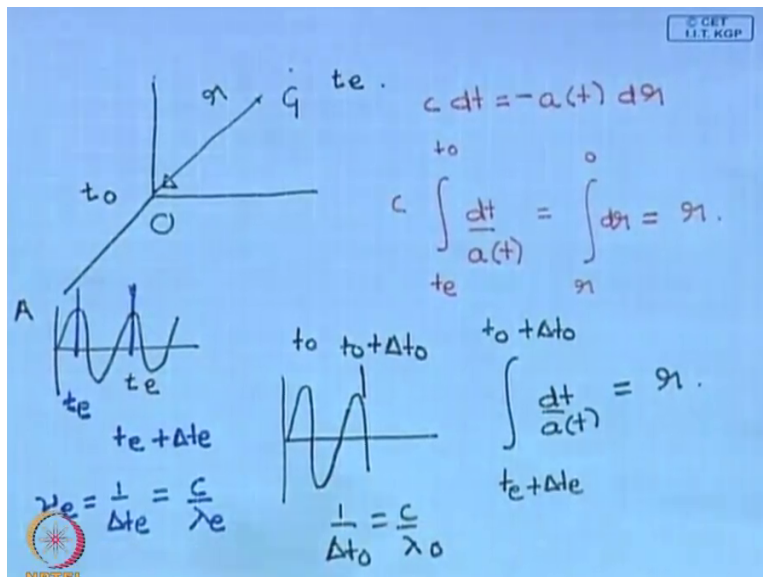 © CET
I.I.T. KGP
r
G
te.
to
O
c dt = -a(t) dr
c ∫_{te}^{to} dt/a(t) = ∫_{r}^{0} dr = r.
A
te
te
te + Δte
νe = 1/Δte = c/λe
to to + Δto
1/Δto = c/λo
∫_{te + Δte}^{to + Δto} dt/a(t) = r.
NPTEL